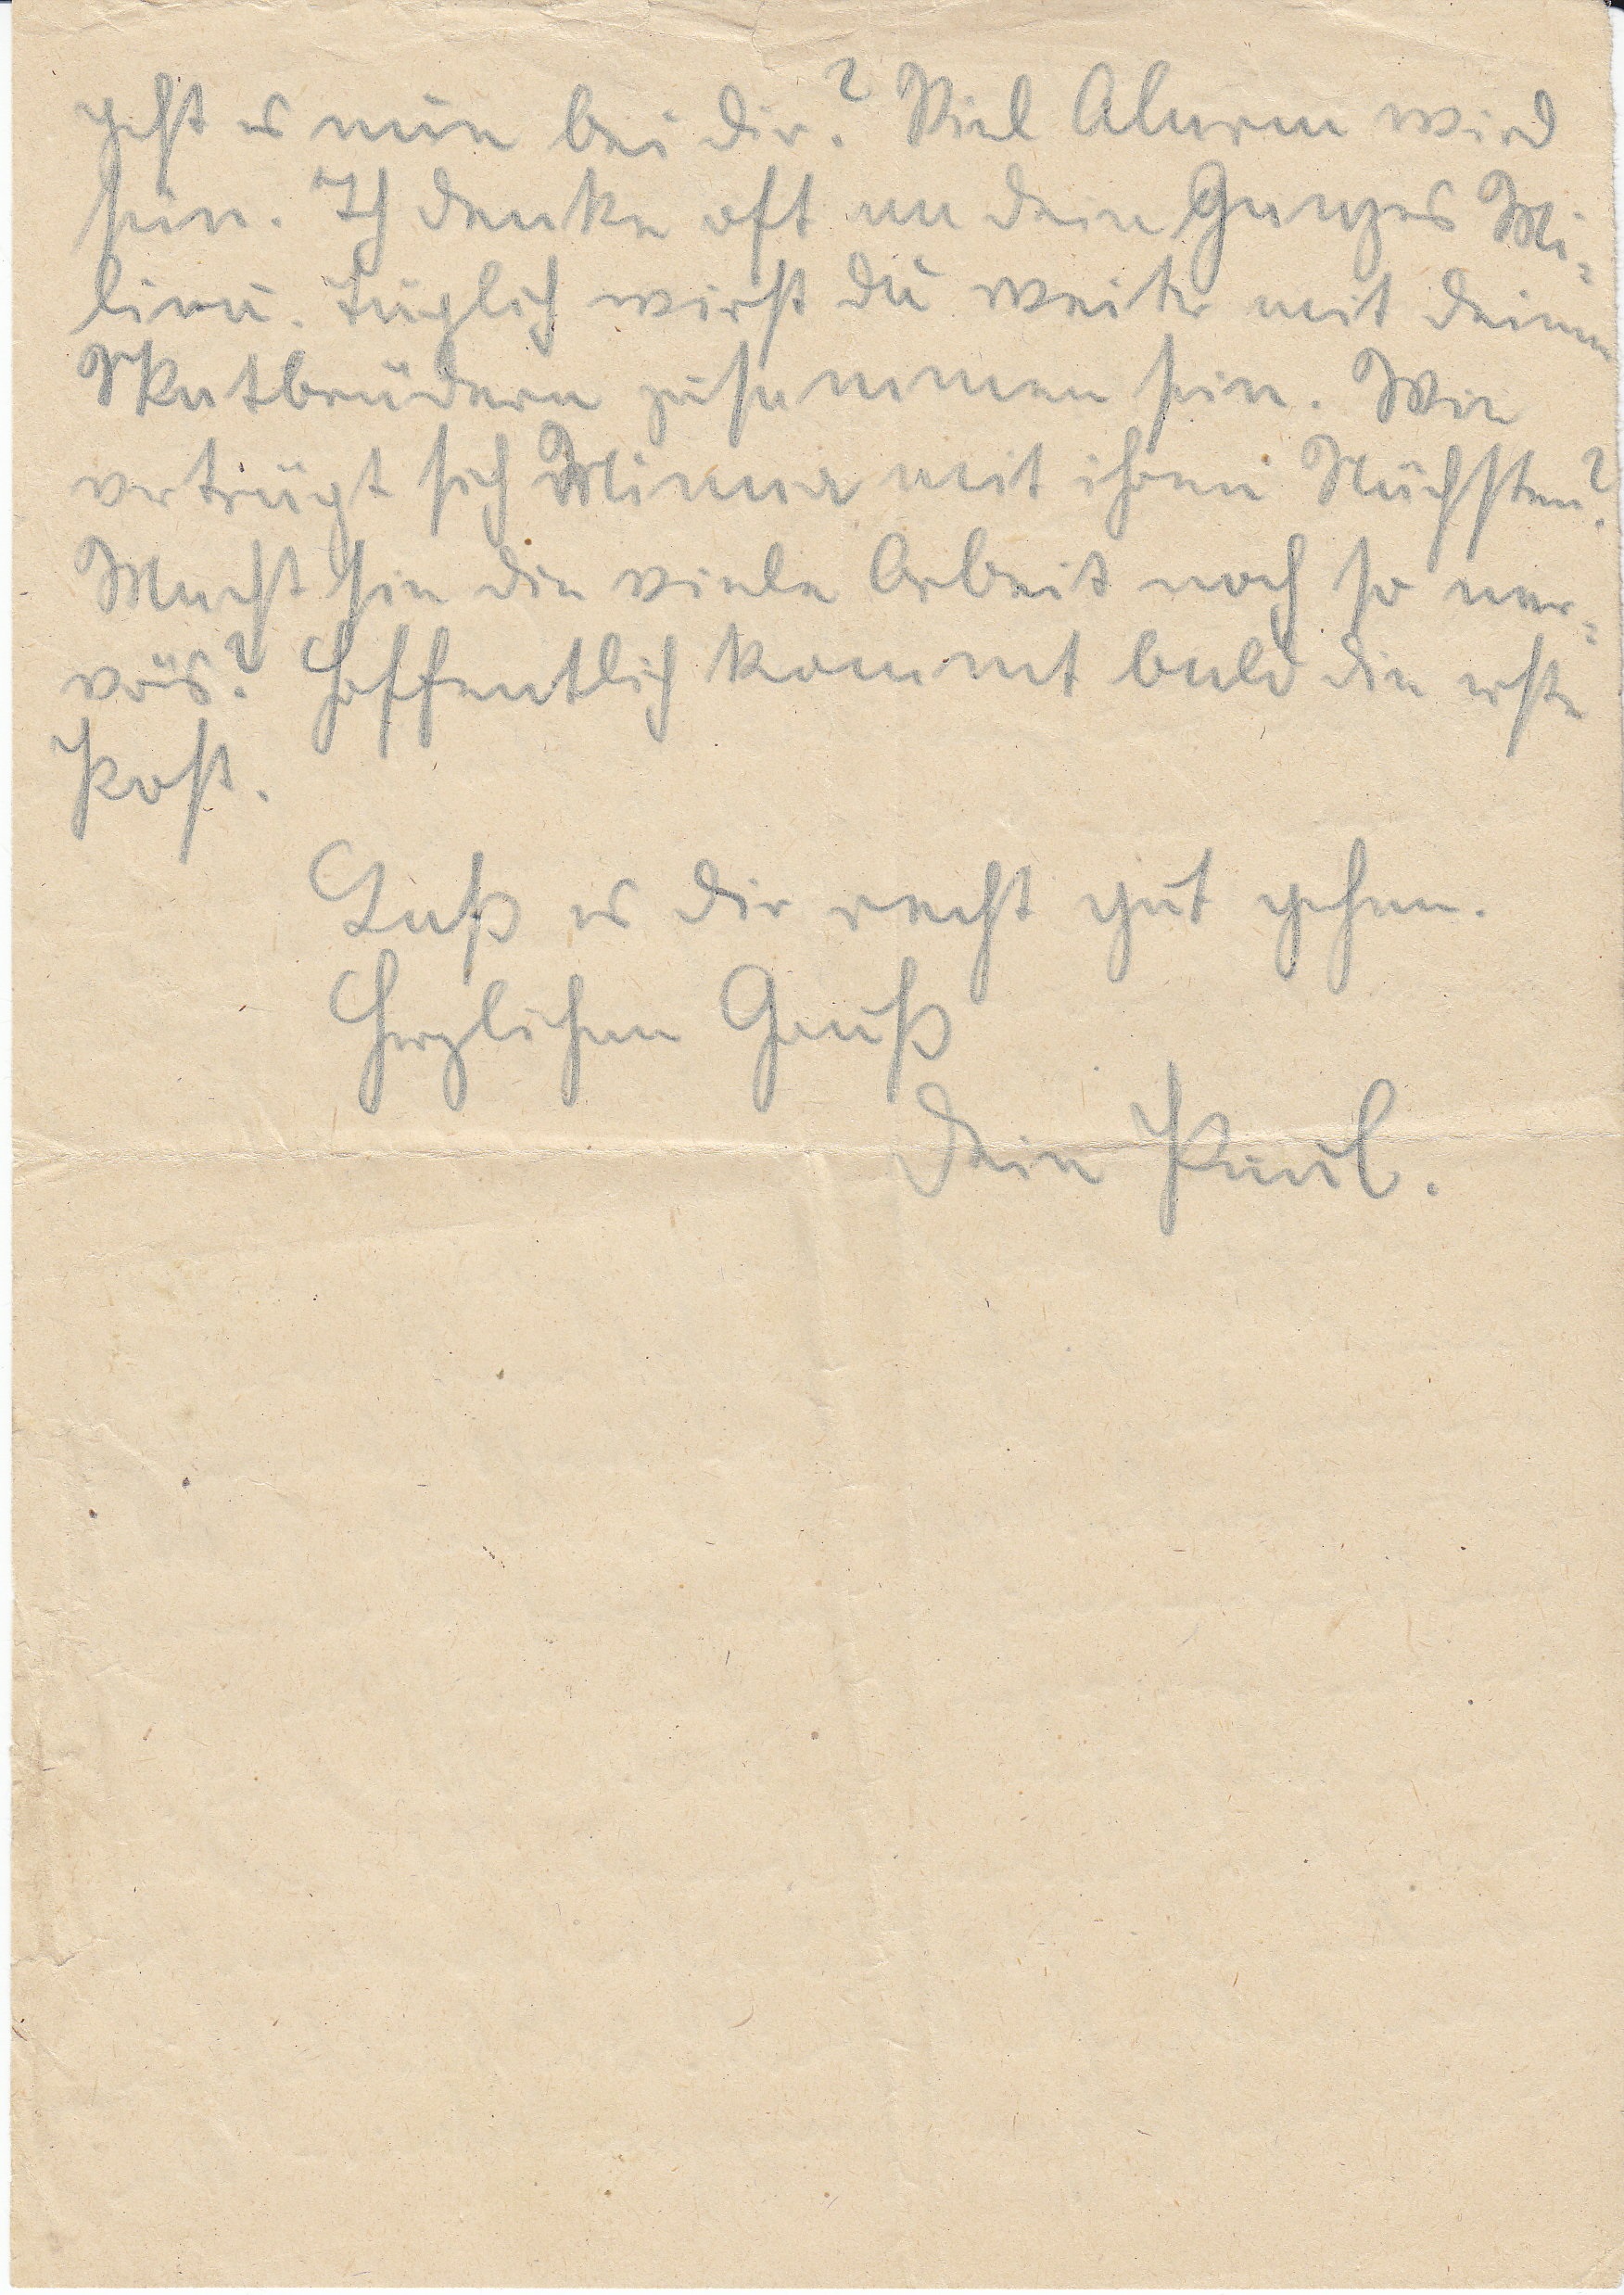 geht es nun bei dir? Viel Alarm wird
sein. Ich denke oft an dein Ganzes Mi=
lieu. Täglich wirst du weiter mit deinen
Skatbrüdern zusammen sein. Wie
verträgt sich Minna mit ihren Nächsten?
Macht sie die viele Arbeit noch so ner=
vös? Hoffentlich kommt bald die erste
Post.
Laß es dir recht gut gehen.
Herzlichen Gruß
Dein Paul.